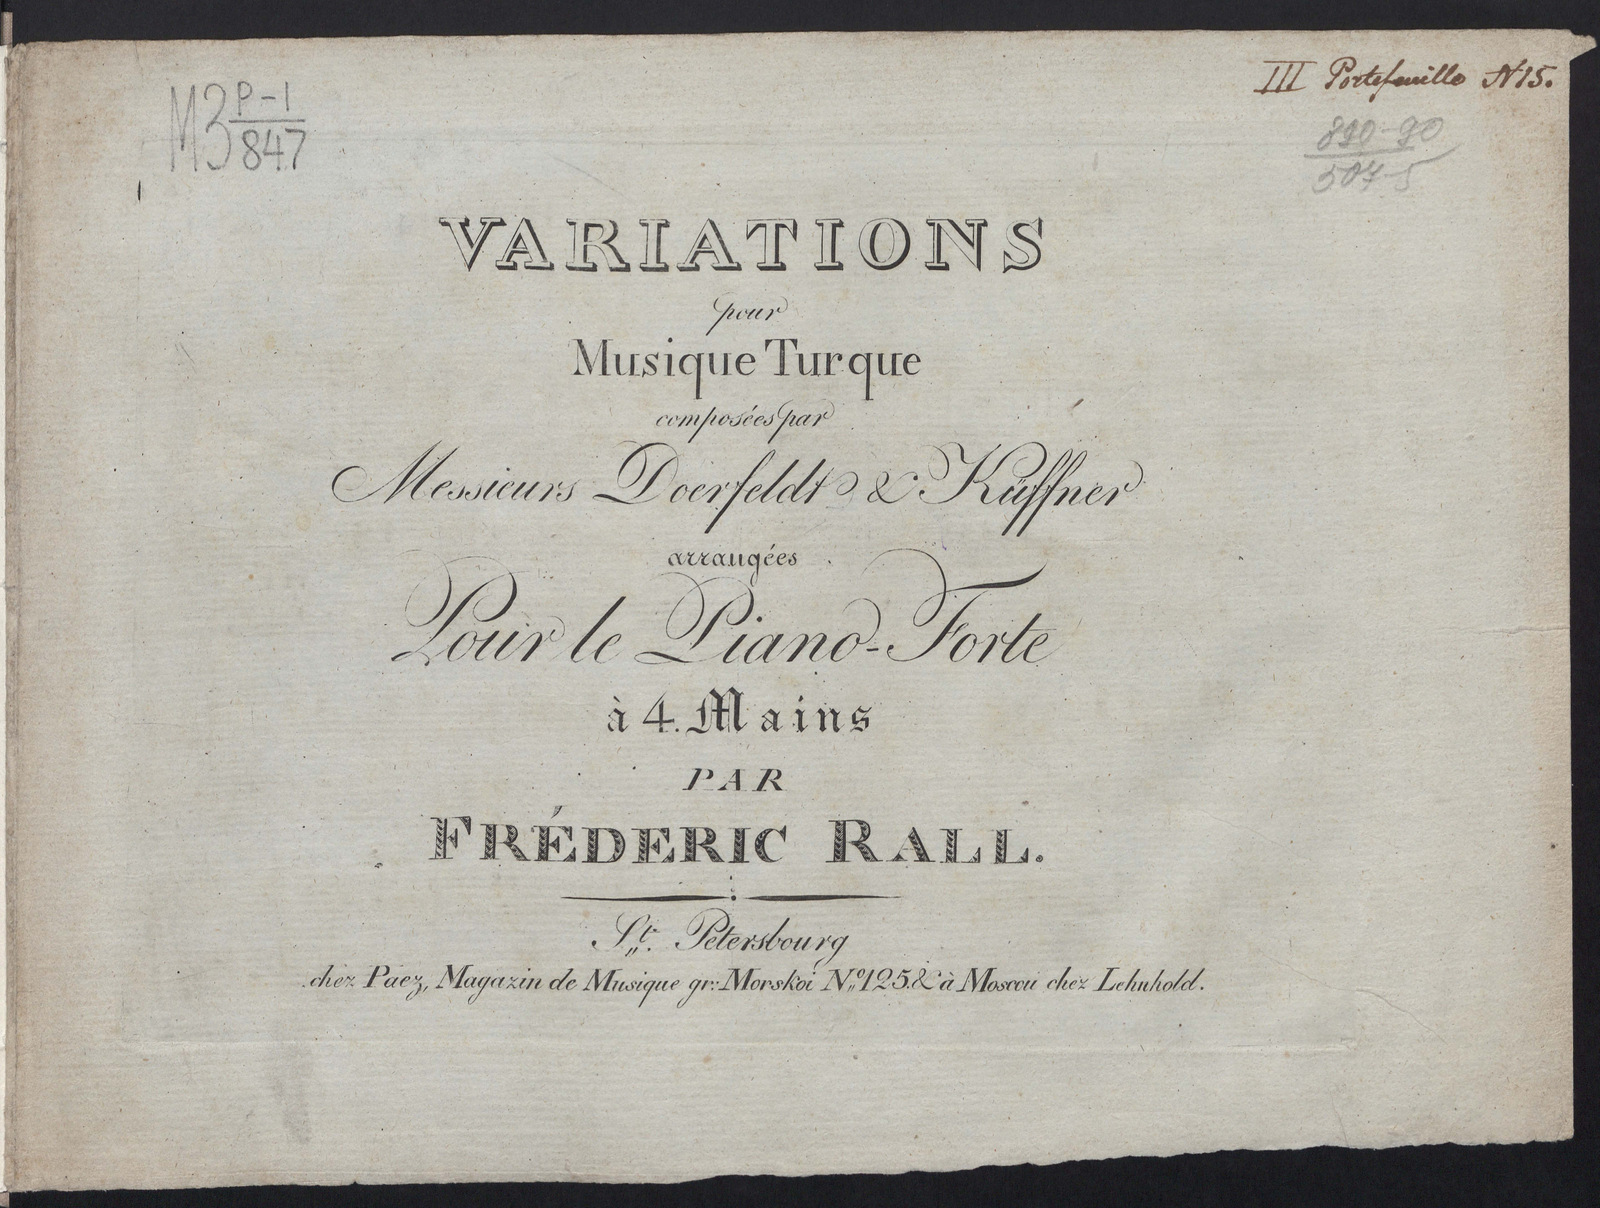 III Portefeuille N 15.
МЗ Р-1
847
VARIATIONS
pour
Musique Turque
composées par
Messieurs Doerfeldt & Küffner
arrangées
Pour le Piano-Forte
à 4. Mains
PAR
FRÉDERIC RALL.
St. Petersbourg
chez Paez, Magazin de Musique gr: Morskoi No. 125. & à Moscou chez Lehnhold.